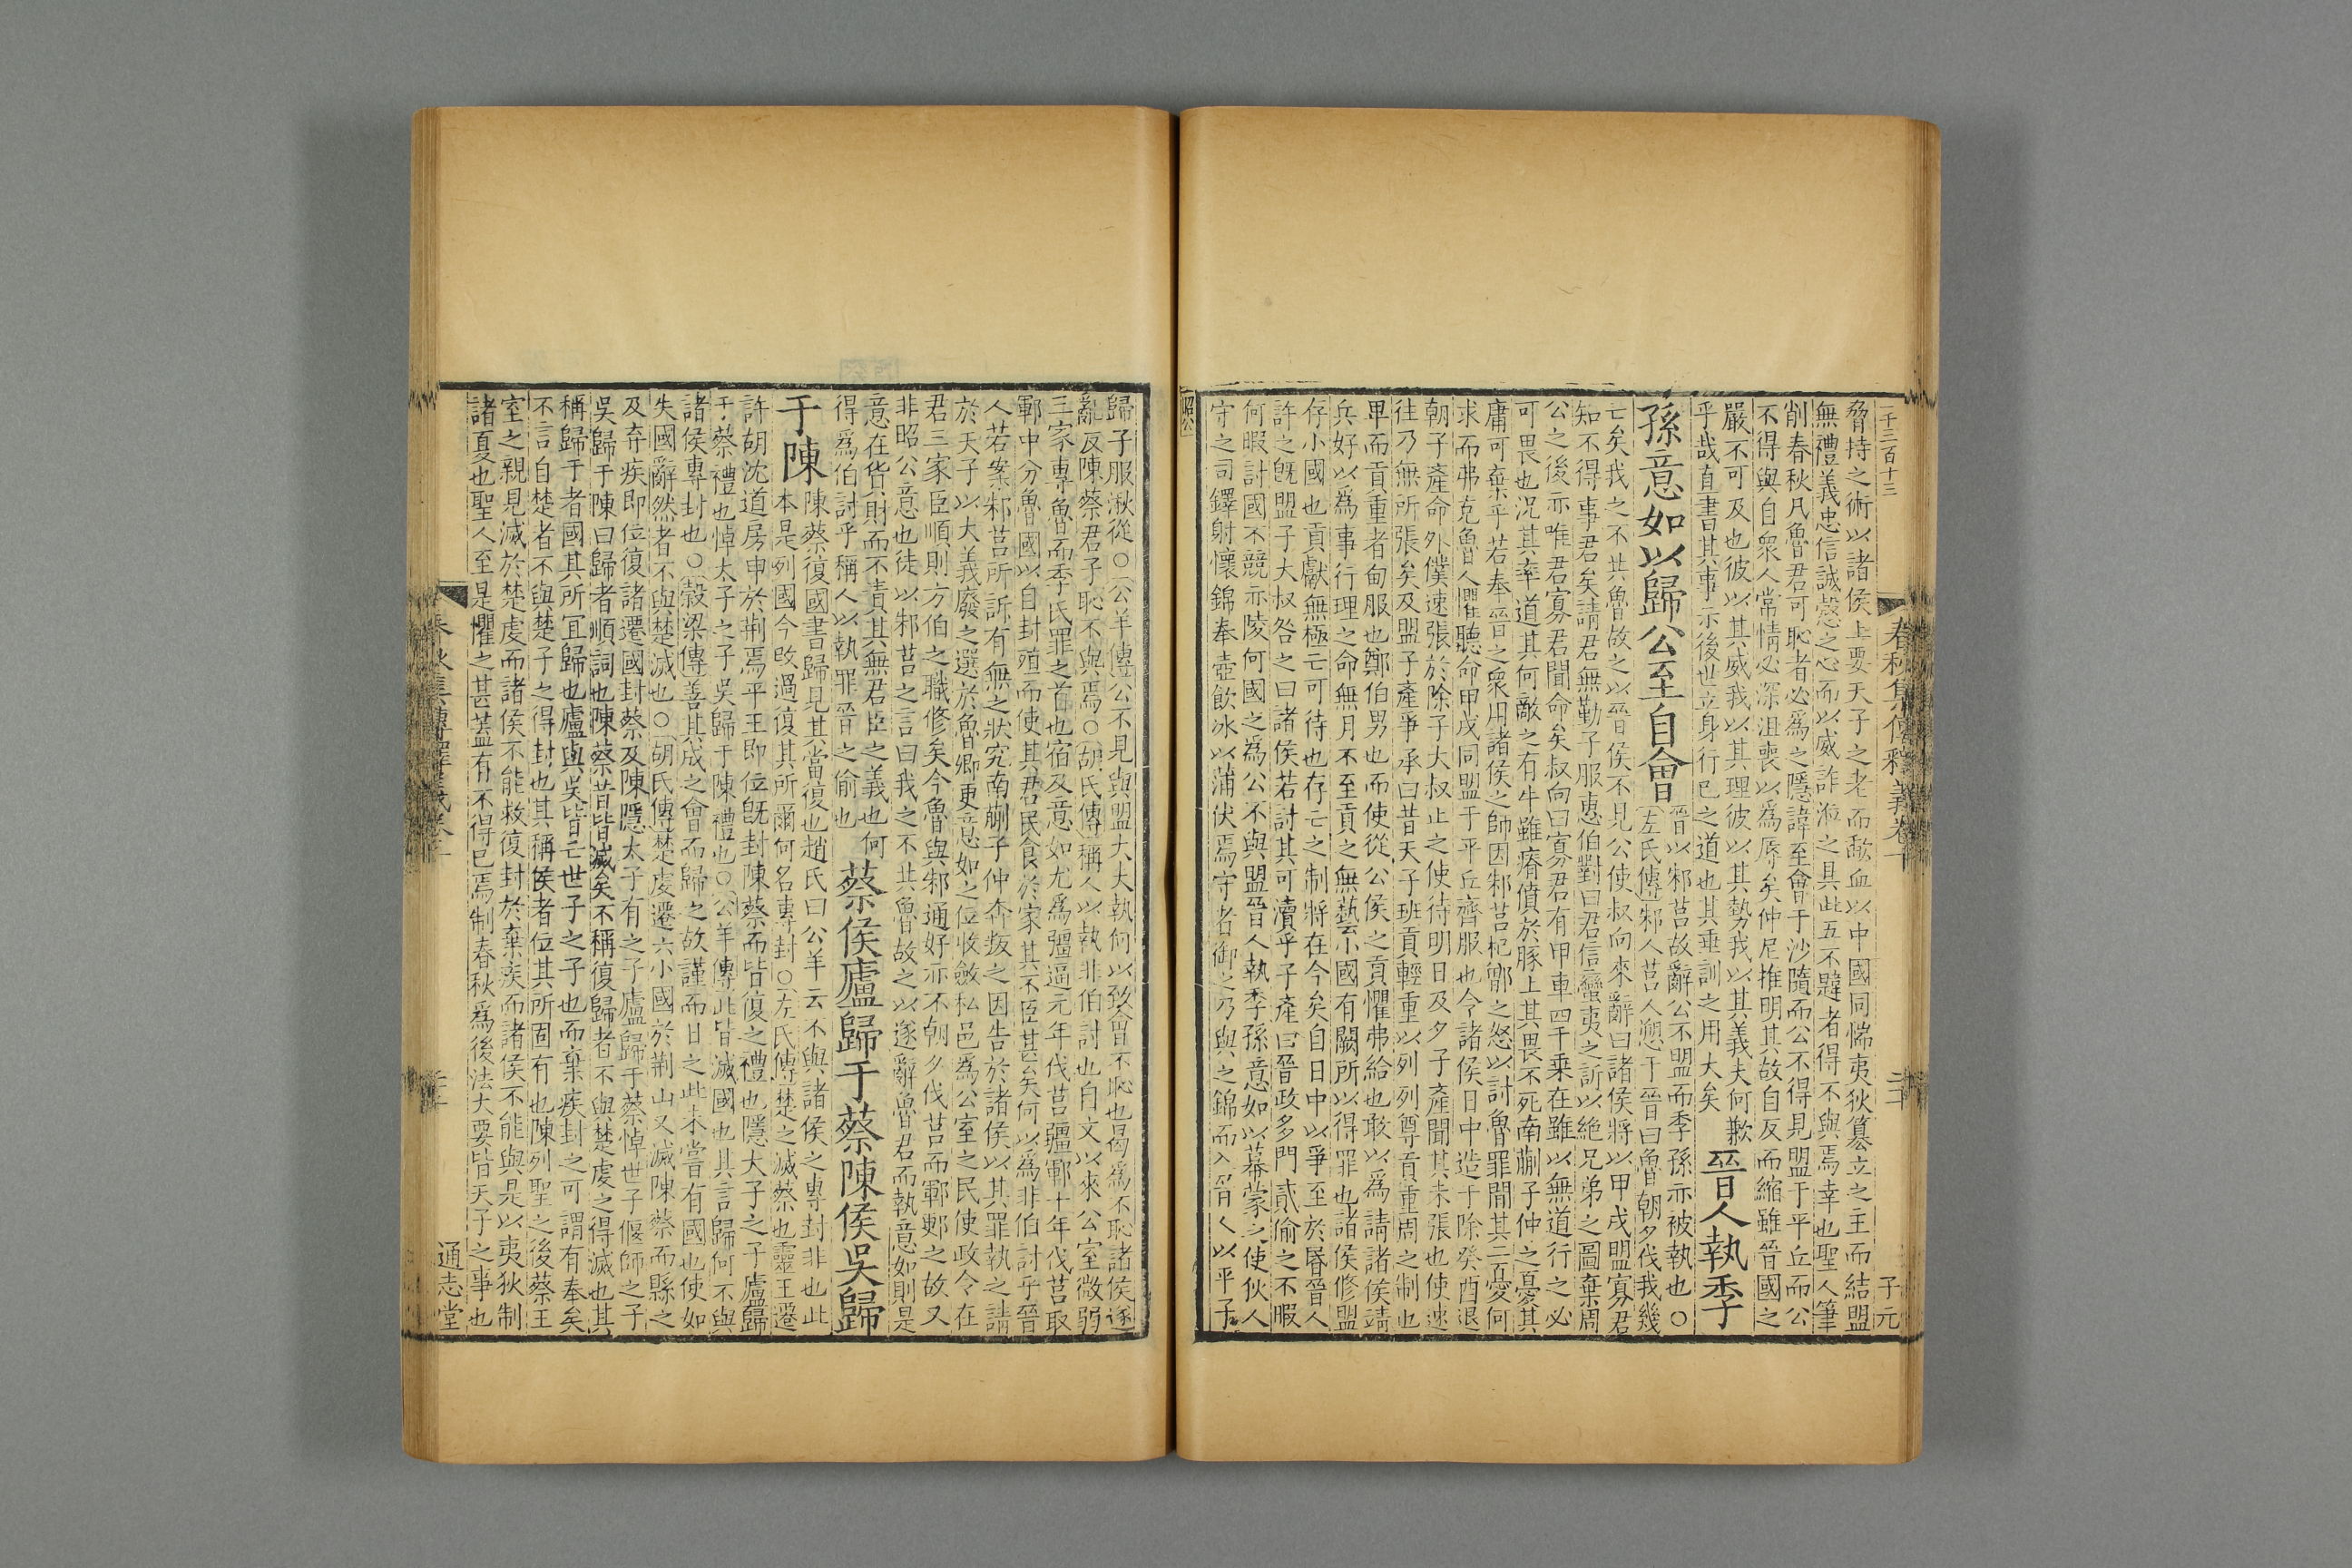 一千三百十三
春秋集傳釋義卷十
子元
脅持之術以諸侯上要天子之老而歃血以中國同惴夷狄篡立之主而結盟
無禮義忠信誠慤之心而以威詐涖之具此五不韙者得不與焉幸也聖人筆
削春秋凡魯君可恥者必爲之隱諱至會于沙隨而公不得見盟于平丘而公
不得與自衆人常情必深沮喪以爲辱矣仲尼推明其故自反而縮雖晉國之
嚴不可及也彼以其威我以其理彼以其勢我以其義夫何歉
乎哉直書其事示後世立身行己之道也其垂訓之用大矣
晉人執季
孫意如以歸公至自會
晉以邾莒故辭公不盟而季孫亦被執也○
左氏傳邾人莒人愬于晉曰魯朝夕伐我幾
亡矣我之不共魯故之以晉侯不見公使叔向來辭曰諸侯將以甲戌盟寡君
知不得事君矣請君無勤子服惠伯對曰君信蠻夷之訴以絶兄弟之國棄周
公之後亦唯君寡君聞命矣叔向曰寡君有甲車四千乗在雖以無道行之必
可畏也況其率道其何敵之有牛雖瘠僨於豚上其畏不死南蒯子仲之憂其
庸可棄乎若奉晉之衆用諸侯之師因邾莒杞鄫之怒以討魯罪間其二憂何
求而弗克魯人懼聽命甲戌同盟于平丘齊服也令諸侯日中造于除癸酉退
朝子產命外僕速張於除子大叔止之使待明日及夕子產聞其未張也使速
往乃無所張矣及盟子產爭承曰昔天子班貢輕重以列列尊貢重周之制也
卑而貢重者甸服也鄭伯男也而使從公侯之貢懼弗給也敢以爲請諸侯靖
兵好以爲事行理之命無月不至貢之無藝小國有闕所以得罪也諸侯修盟
存小國也貢獻無極亡可待也存亡之制將在今矣自日中以爭至於昬晉人
許之旣盟子大叔咎之曰諸侯若討其可瀆乎子產曰晉政多門貳偷之不暇
何暇討國不競亦陵何國之爲公不與盟晉人執季孫意如以幕蒙之使狄人
守之司鐸射懷錦奉壺飮冰以蒲伏焉守者御之乃與之錦而入晉人以平子
昭公
歸子服湫從○公羊傳公不見與盟大夫執何以致會不恥也曷爲不恥諸侯遂
亂反陳蔡君子恥不與焉○胡氏傳稱人以執非伯討也自文以來公室微弱
三家專魯而季氏罪之首也宿及意如尤爲彊逼元年伐莒疆鄆十年伐莒取
鄆中分魯國以自封殖而使其君民食於家其不臣甚矣何以爲非伯討乎晉
人若案邾莒所訴有無之狀究南蒯子仲奔叛之因告於諸侯以其罪執之請
於天子以大義廢之選於魯卿更意如之位收斂私邑爲公室之民使政令在
君三家臣順則方伯之職修矣今魯與邾通好亦不朝夕伐莒而鄆郠之故又
非昭公意也徒以邾莒之言曰我之不共魯故之以遂辭魯君而執意如則是
意在貨財而不責其無君臣之義也何
得爲伯討乎稱人以執罪晉之偷也
蔡侯廬歸于蔡陳侯吳歸
于陳
陳蔡復國書歸見其當復也趙氏曰公羊云不與諸侯之專封非也此
本是列國今改過復其所爾何名專封○左氏傳楚之滅蔡也靈王遷
許胡沈道房申於荆焉平王即位旣封陳蔡而皆復之禮也隱大子之子廬歸
于蔡禮也悼太子之子吳歸于陳禮也○公羊傳此皆滅國也其言歸何不與
諸侯專封也○穀梁傳善其成之會而歸之故謹而日之此未嘗有國也使如
失國辭然者不與楚滅也○胡氏傳楚虔遷六小國於荆山又滅陳蔡而縣之
及弃疾即位復諸遷國封蔡及陳隱太子有之子廬歸于蔡悼世子偃師之子
吳歸于陳曰歸者順詞也陳蔡昔皆滅矣不稱復歸者不與楚虔之得滅也其
稱歸于者國其所冝歸也廬與吳皆亡世子之子也而棄疾封之可謂有奉矣
不言自楚者不與楚子之得封也其稱侯者位其所固有也陳列聖之後蔡王
室之親見滅於楚虔而諸侯不能救復封於棄疾而諸侯不能與是以夷狄制
諸夏也聖人至是懼之甚葢有不得已焉制春秋爲後法大要皆天子之事也
通志堂